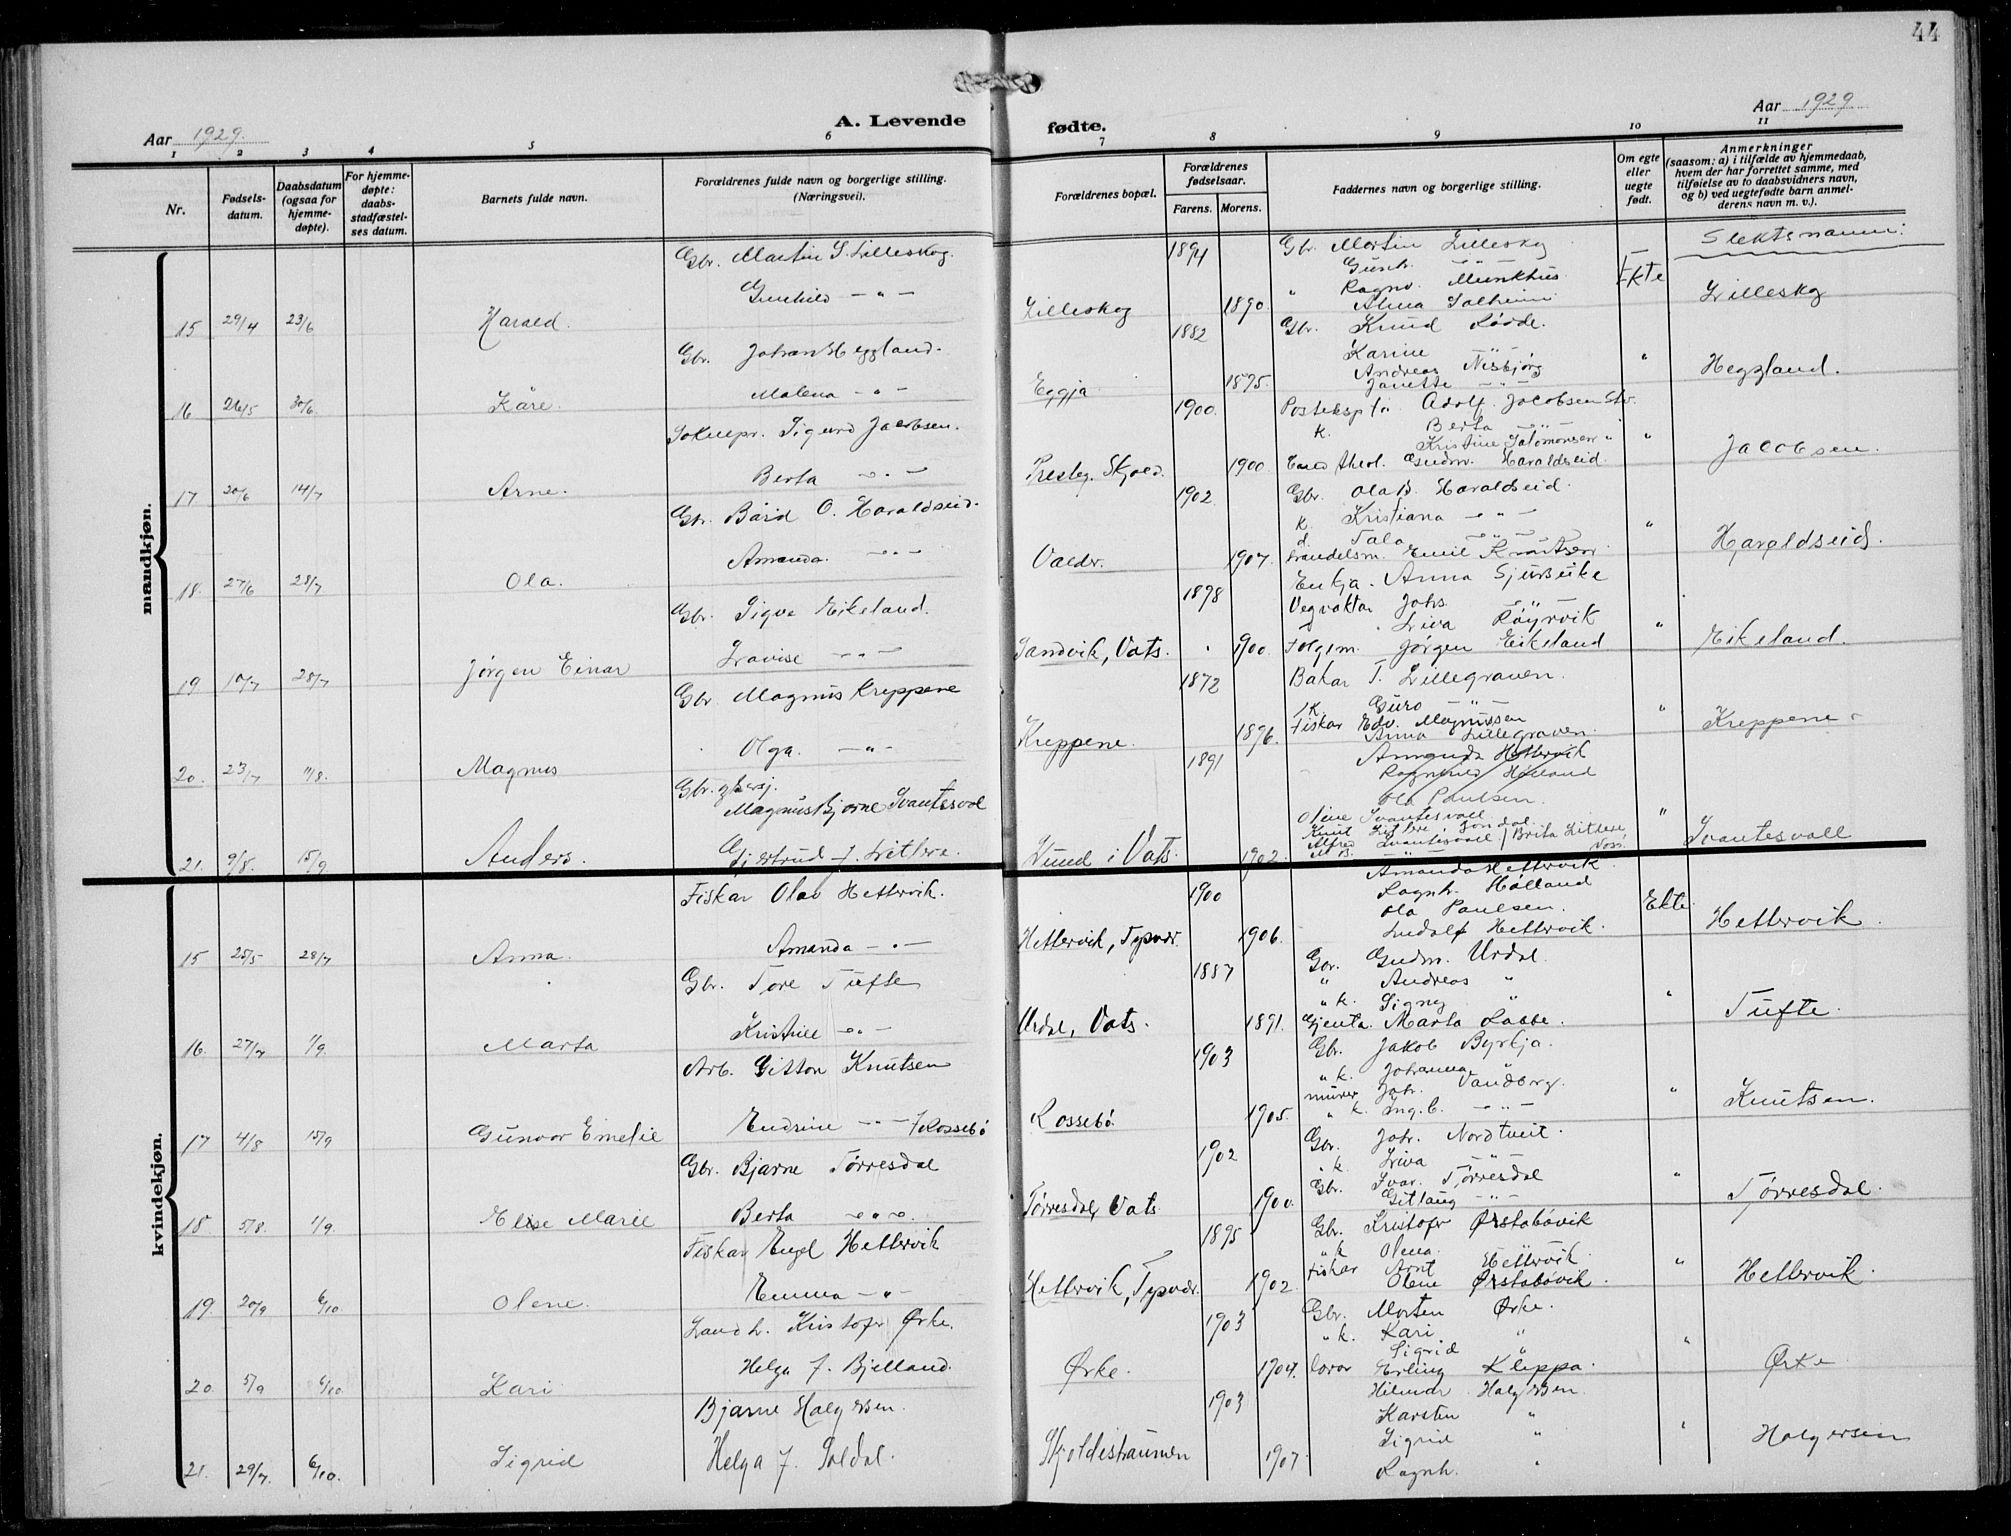 44
Aar 1929.
A. Levende
fødte.
Aar 1929
1 2 3 4 5 6 7 8 9 10 11
Nr.
Fødsels-
datum.
Daabsdatum
(ogsaa for
hjemme-
døpte).
For hjemme-
døpte:
daabs-
stadfæstel-
ses datum.
Barnets fulde navn.
Forældrenes fulde navn og borgerlige stilling.
(Næringsvei).
Forældrenes bopæl.
Forældrenes
fødselsaar.
Farens. Morens.
Faddernes navn og borgerlige stilling.
Om egte
eller
uegte
født.
Anmerkninger
(saasom: a) i tilfælde av hjemmedaab,
hvem der har forrettet samme, med
tilføielse av to daabsvidners navn,
og b) ved uegtefødte barn anmel-
derens navn m. v.).
Slektsnamn:
mandkjøn.
15 29/4 23/6 Harald.
Gbr. Martin S. Lilleskog.
Gunhild — " —
Lilleskog 1894 1890.
Gbr. Martin Lilleskog
Gunh. " "
" Ragnv. Munkhus
Alma Solheim
Ekte
Lilleskog
16 26/5 30/6 Kåre.
Gbr. Johan Heggland.
Malena — " —
Eggja 1882 1895.
Gbr. Knud Rødde.
Karine "
Andreas Nesbjørg
Janette — " —
"
Heggland.
17 20/6 14/7 Arne.
Soknepr. Sigurd Jacobsen.
Berta — " —
Presteg. Skjold. 1900. 1900
Postekspdr. Adolf Jacobsen Stv.
k. Berta — " —
Kristine Salomonsen "
Cand. theol. Gudm. Haraldseid.
"
Jacobsen
18. 27/6 28/7 Ola.
Gbr. Bård O. Haraldseid.
Amanda. — " —
Valdr. 1902 1907.
Gbr. Ola B. Haraldseid.
k. Kristiana — " —
d. Tala — " —
Handelsm. Emil Knutsen
"
Haraldseid.
19 10/7 28/7 Jørgen Einar
Gbr. Sigve Eikeland.
Lovise — " —
Sandvik, Vats. 1898 1900.
Enkja. Anna Sjurseike
Vegvaktar Johs. "
" Liva Røyrvik
Folgem. Jørgen Eikeland
"
Eikeland.
20. 23/7 11/8. Magnus
Gbr. Magnus Kreppene
Olga. — " —
Kreppene. 1872 1896.
Bakar T. Lillegraven.
k. Guro — " —
Fiskar Edv. Magnussen
Anna Lillegraven.
"
Kreppene
21. 9/8. 15/9 Anders.
Magnus Bjarne Svantesvol
Gjertrud f. Litlere.
1891 1902.
Amanda Hettervik
Ragnhild Høiland
Ola Paulsen.
Olene Svantesvoll
Knut Litlere, Jondal.
Alfred Svantesvoll / Brita Litlere
"
Svantesvoll
kvindekjøn.
15 25/5 28/7 Anna.
Fiskar Olav Hettervik.
Amanda — " —
Hettervik, Tysvær. 1900 1906.
Amanda Hettervik.
Ragnh. Høiland
Ola Paulsen.
Ludolf Hettervik.
Ekte
Hettervik
16. 27/7 1/9. Marta
Gbr. Tore Tufte
Kristine — " —
Urdal, Vats. 1887 1891.
Gbr. Gudm. Urdal.
" Andreas "
" k. Signy "
Gjenta. Marta Labbe.
"
Tufte.
17 4/8 15/9 Gunvor Emelie
Arb. Gitton Knutsen
Endrine — " — f. Rossebø
Rossebø. 1903 1905.
Gbr. Jakob Byrkja.
" k. Johanna "
murer Joh. Vandberg.
" k. Ing. C. — " —
"
Knutsen.
18 5/8. 1/9. Elise Marie
Gbr. Bjarne Tørresdal
Berta — " —
Tørresdal, Vats 1902 1900.
Gbr. Joh. Nordtveit.
" k. Liva — " —
Gbr. Ivar Tørresdal
Gitlaug — " —
"
Tørresdal.
19. 20/9 6/10 Olene.
Fiskar Engel Hettervik
Emma — " —
Hettervik, Tysvær. 1895 1902.
Gbr. Kristofer Ørstabøvik
" k Olena "
Fiskar Arnt Hettervik.
Olene Ørstabøvik.
"
Hettervik.
20. 5/9 6/10. Kari
Landh. Kristofer Ørke.
Helga f. Bjelland.
Ørke. 1903 1904.
Gbr. Morten Ørke.
" k. Kari "
Sigrid "
lærar Erling Kleppa.
"
Ørke
21. 29/7. 6/10. Sigrid
Bjarne Halgersen.
Helga f. Soldal.
Skjoldestraumen 1903 1907.
Hilmar Halgersen.
Karsten "
Sigrid "
Ragnh. "
"
Halgersen